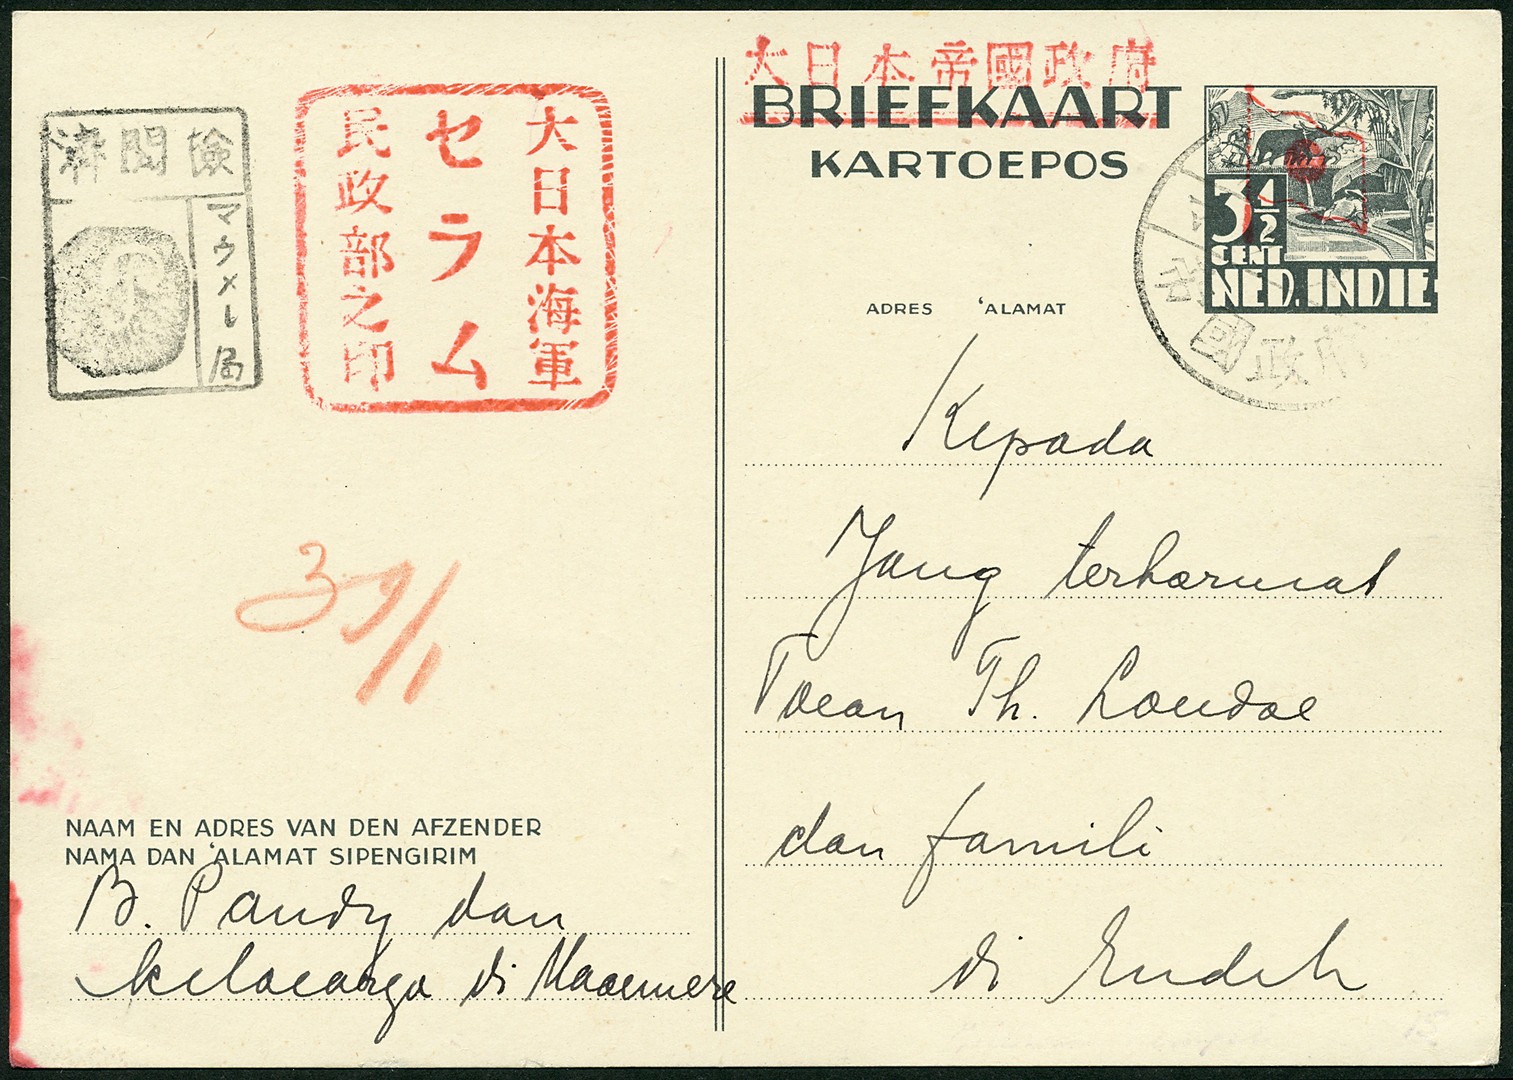 大日本帝國政府
BRIEFKAART
KARTOEPOS
3½
CENT
NED. INDIE
ADRES 'ALAMAT
Kepada
Jang terhormat
Toean Th. Loudoe
dan famili
di Endeh
検閲済
マウメレ局
大日本海軍
セラム
民政部之印
帝國政府
NAAM EN ADRES VAN DEN AFZENDER
NAMA DAN 'ALAMAT SIPENGIRIM
B. Pandy dan
keloearga di Maoemere